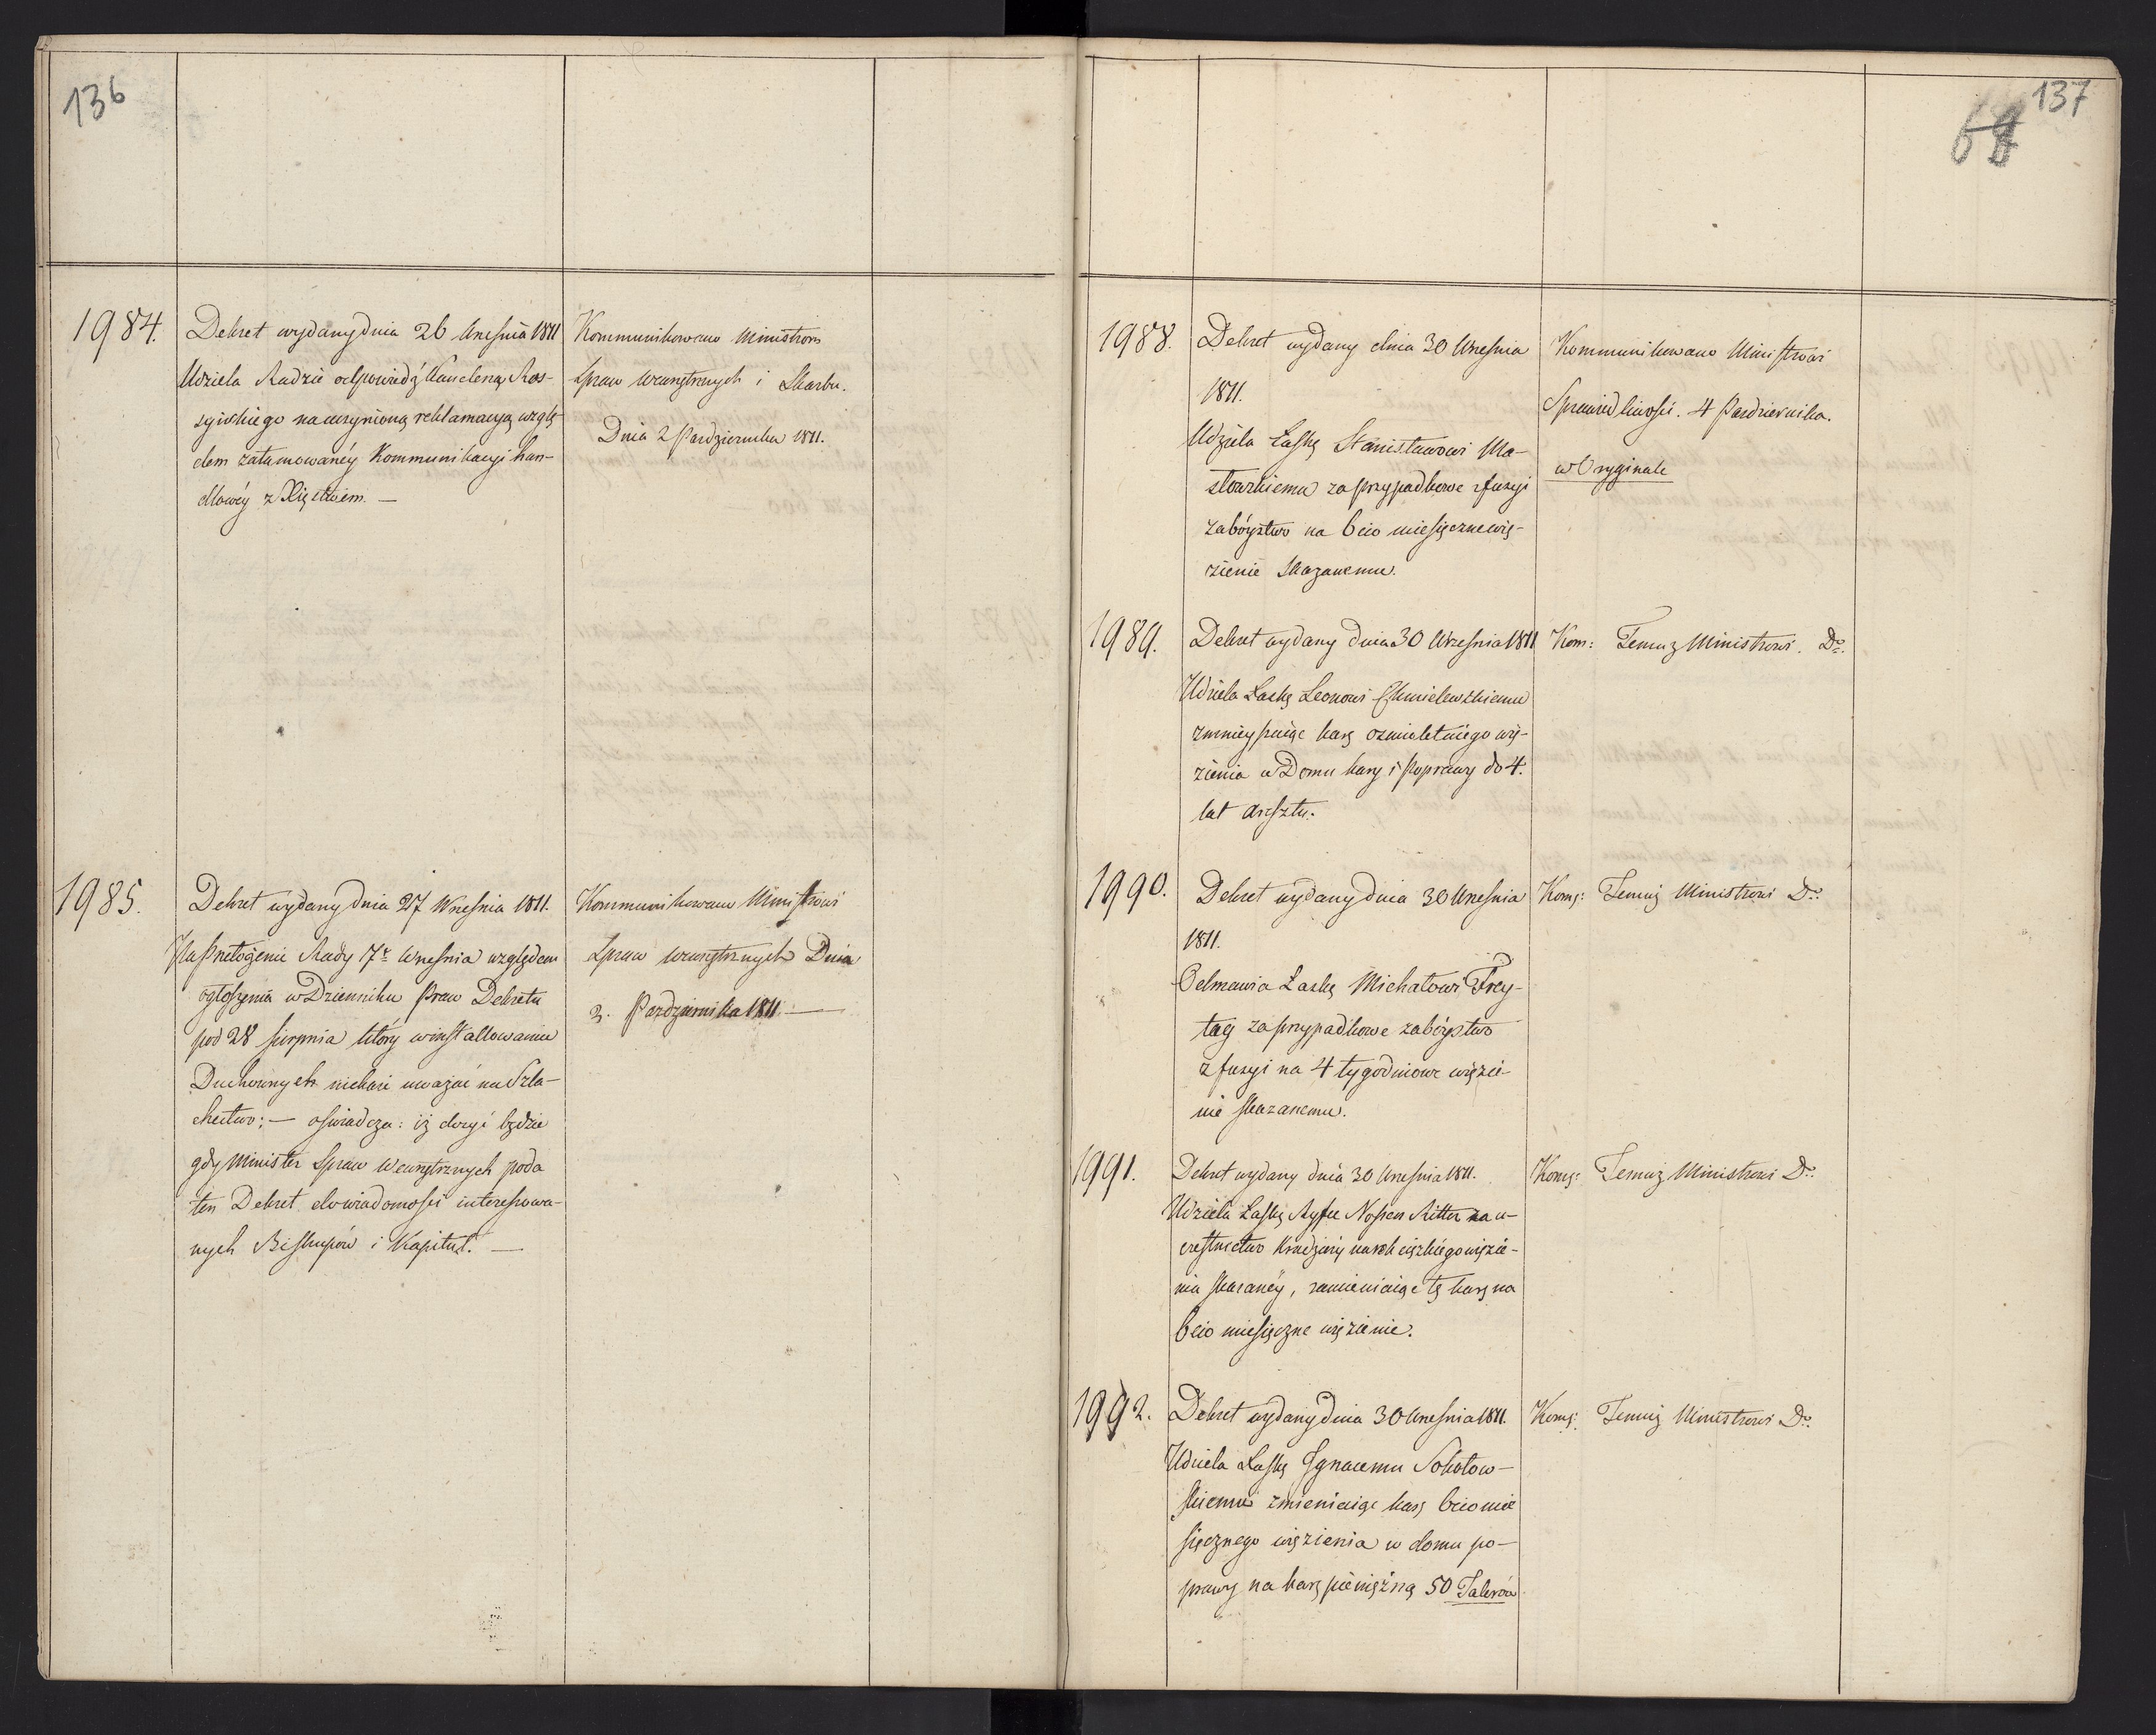 136
1984.
Dekret wydany dnia 26 Wresnia 1811
Udziela Radzie odpowiedź Kanclerza Ros-
syiskiego na uczynioną reklamacyą wzglę-
dem zatamowanéy Kommunikacyi han-
dlowéy z Xięstwem. —
Kommunikowano Ministrom
Spraw Wewnętrznych i Skarbu.
Dnia 2 Pazdziernika 1811.
1985.
Dekret wydany dnia 27 Wresnia 1811.
Na Przełożenie Rady 17 Wrzesnia względem
ogłoszenia w Dzienniku Praw Dekretu
pod 28 Sierpnia który w installowaniu
Duchownych niekaże uważać na Szla-
chectwo; — oświadcza: iż dosyć będzie
gdy Minister Spraw Wewnętrznych poda
ten Dekret do wiadomości interessowa-
nych Biskupów i Kapituł. —
Kommunikowano Ministrowi
Spraw Wewnętrznych Dnia
2. Pazdziernika 1811. —
137
68
1988.
Dekret wydany dnia 30 Wrzesnia
1811.
Udziela Łaskę Stanisławowi Ma-
słowskiemu za przypadkowe z fuzyi
zabóystwo na 6cio miesięczne wię-
zienie skazanemu.
Kommunikowano Ministrowi
Sprawiedliwości. 4 Pazdziernika.
w Oryginale
1989.
Dekret wydany dnia 30 Wrzesnia 1811
Udziela Łaskę Leonowi Chmielewskiemu
zmnieyszaiąc karę osmioletniego wię-
zienia w Domu kary i Poprawy do 4.
lat aresztu.
Kom: Temuż Ministrowi. Do.
1990.
Dekret wydany dnia 30 Wrzesnia
1811.
Odmawia Łaskę Michałowi Frey-
tag za przypadkowe zabóystwo
z fuzyi na 4 tygodniowe więzie-
nie skazanemu.
Kom: Temuż Ministrowi Do.
1991.
Dekret wydany dnia 30 Wrzesnia 1811.
Udziela Łaskę Ryfce Nossen Ritter za u-
czestnictwo Kradzieży na rok ciężkiego więzie-
nia skazanéy, zamieniaiąc tę karę na
6cio miesięczne więzienie.
Kom: Temuż Ministrowi Do.
1992.
Dekret wydany dnia 30 Wrzesnia 1811.
Udziela Łaskę Ignacemu Sokołow-
skiemu zmieniaiąc karę 6cio mie
sięcznego więzienia w domu po-
prawy na karę pieniężną 50 Talerów
Kom: Temuż Ministrowi Do.